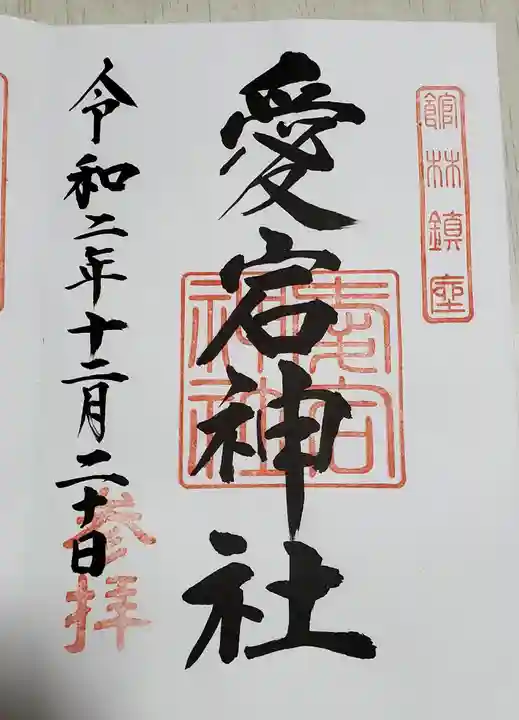 館林鎮座
愛宕神社
愛宕
神社
令和二年十二月二十日
参拝